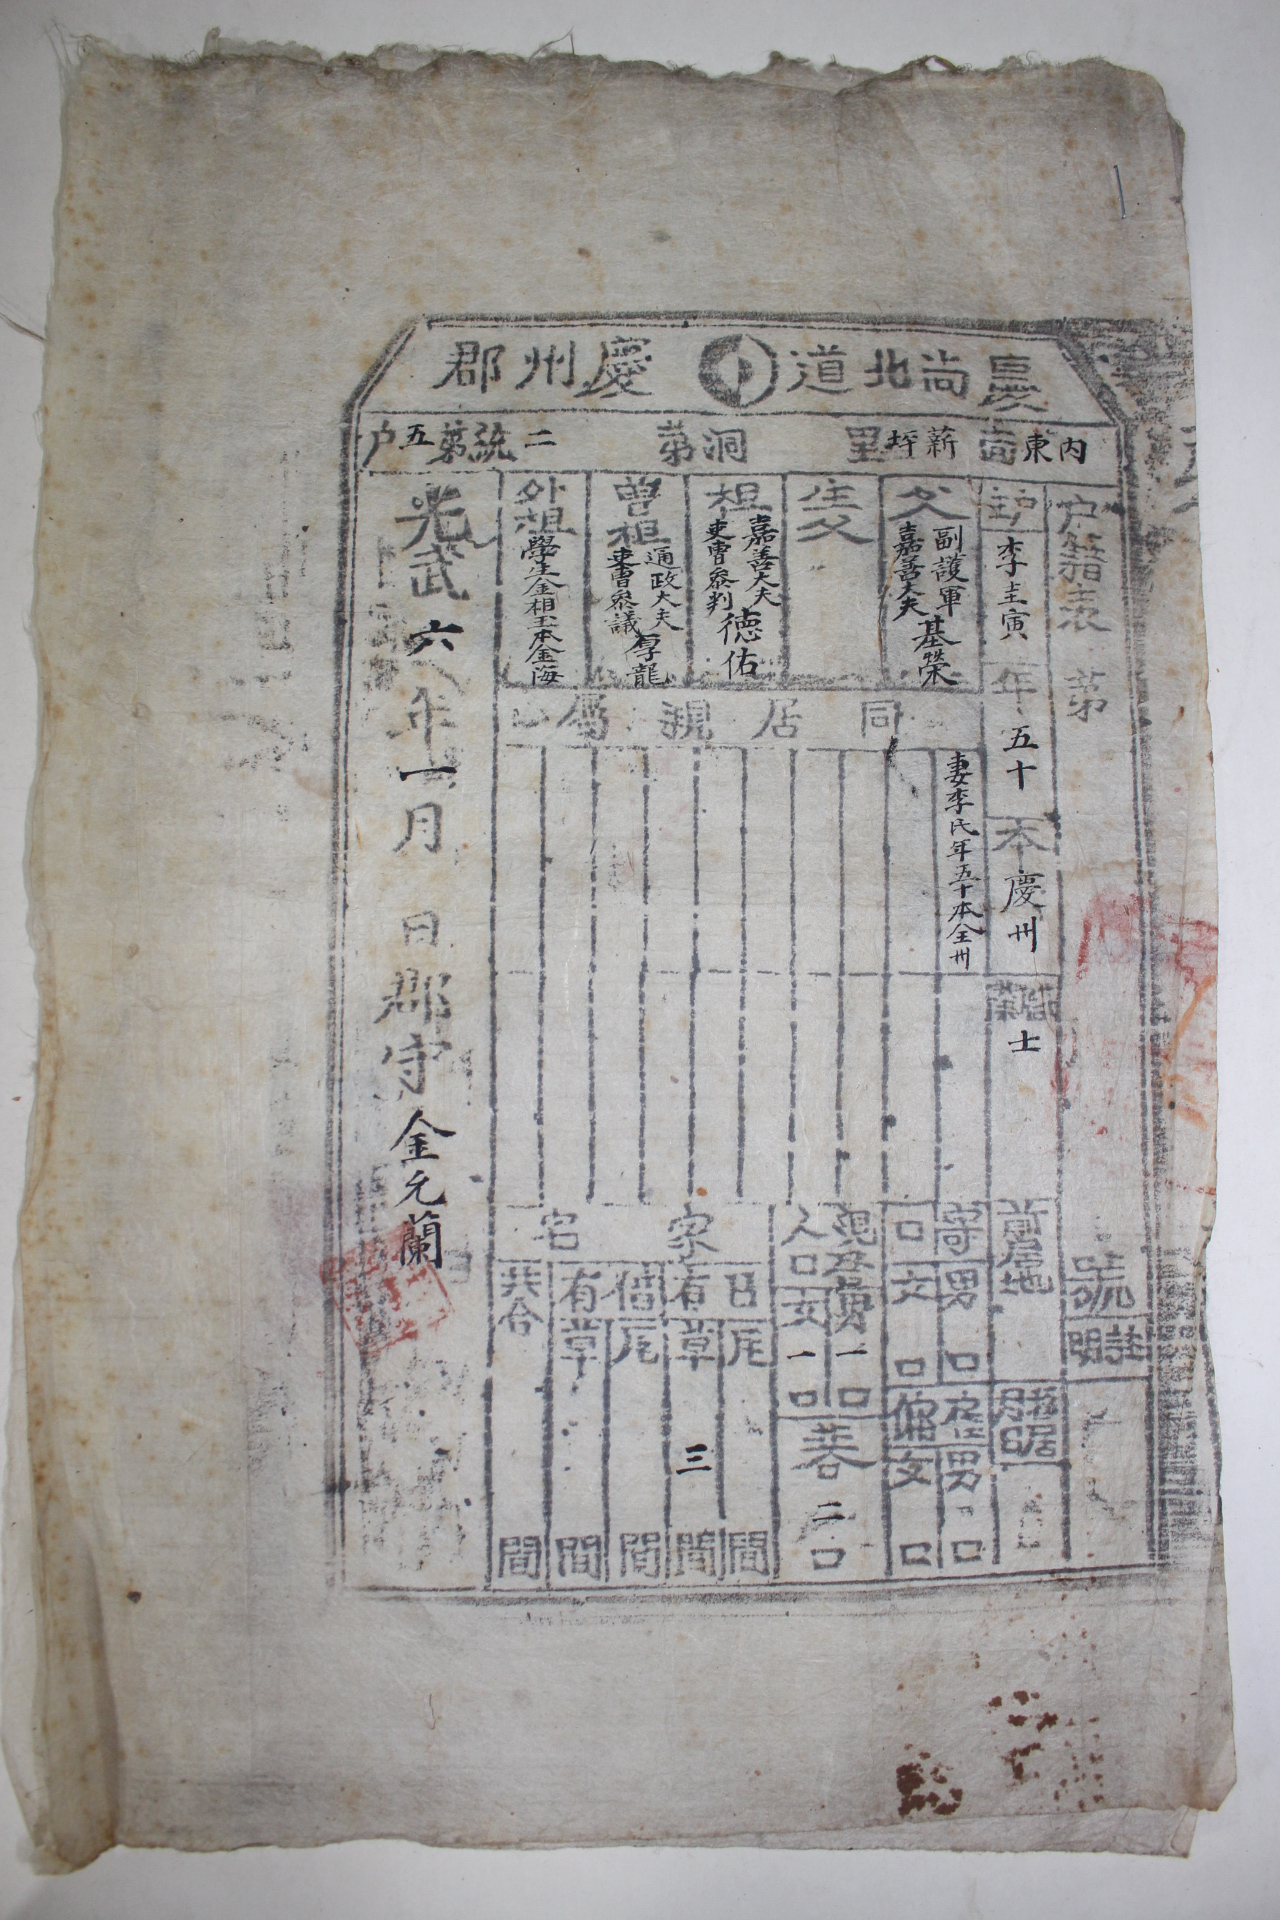 慶尙北道 慶州郡
內東面 薪坪里 洞 第二統 第五戶
戶籍表 第 號
主戶 李圭寅 年 五十 本 慶州 職業 士
前居地
移居月日
父 副護軍 嘉善大夫 基榮
生父
祖 嘉善大夫 吏曹參判 德佑
曾祖 通政大夫 吏曹參議 厚龍
外祖 學生金相玉本金海
同居親屬
妻李氏年五十本全州
寄口 男 口 女 口
雇傭 男 口 女 口
現存人口 男 一 口 女 一 口
共 二 口
家宅
己有 瓦 間 草 三 間
借有 瓦 間 草 間
共合 間
光武六年一月 日 郡守 金允蘭